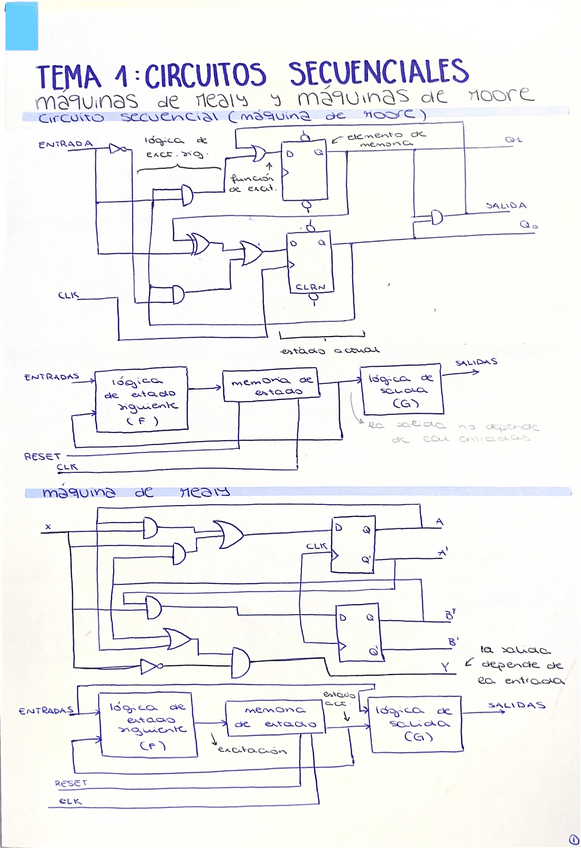 TEMA 1: CIRCUITOS SECUENCIALES
máquinas de Mealy y máquinas de Moore
circuito secuencial (máquina de Moore)
ENTRADA
lógica de
excit. sig.
función
de excit.
D Q
elemento de
memoria
Q1
SALIDA
Q0
D Q
CLRN
CLK
estado actual
ENTRADAS
lógica
de estado
siguiente
(F)
memoria de
estado
lógica de
salida
(G)
SALIDAS
la salida no depende
de las entradas
RESET
CLK
máquina de Mealy
X
D Q
Q'
CLK
A
A'
D Q
Q'
B'
Y
la salida
depende de
la entrada
ENTRADAS
lógica de
estado
siguiente
(F)
excitación
memoria
de estado
estado
act.
lógica de
salida
(G)
SALIDAS
RESET
CLK
1